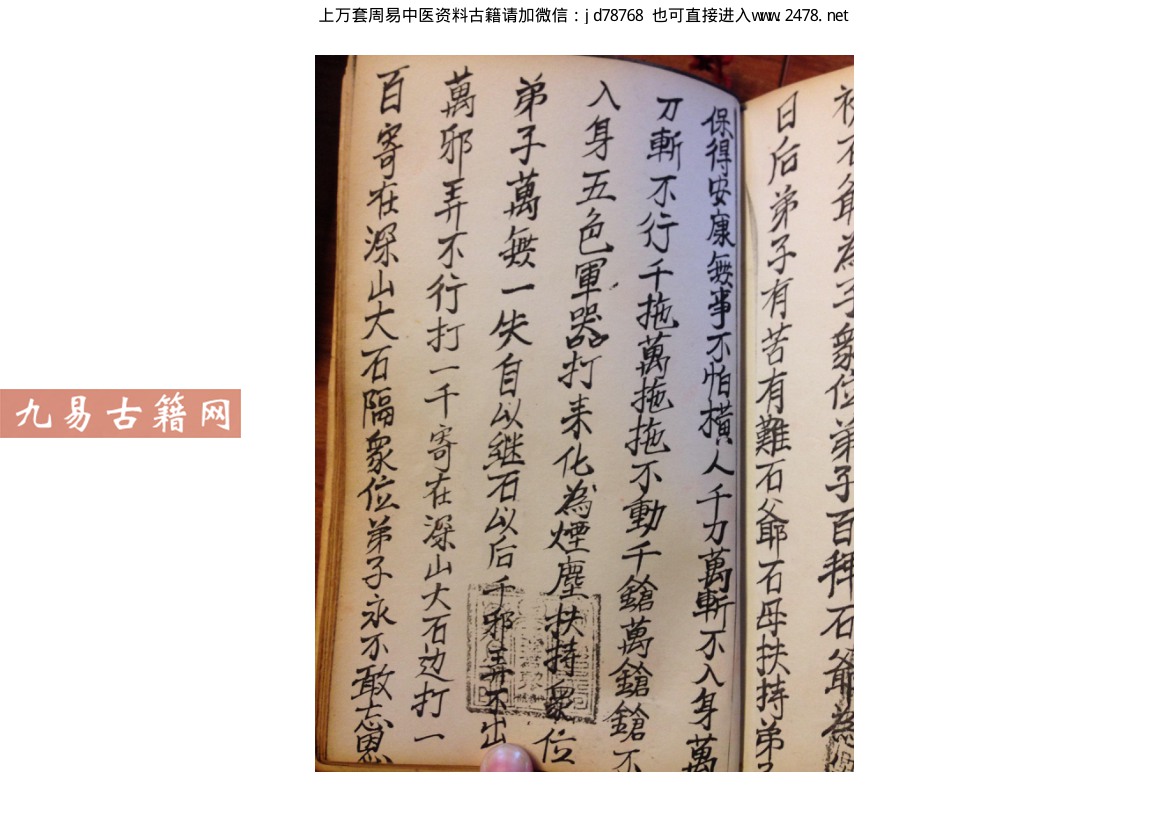 上万套周易中医资料古籍请加微信：jd78768 也可直接进入www.2478.net
石爺為主衆位弟子百拜石爺為
日后弟子有苦有難石爺石母扶持弟子
保得安康無事不怕橫人千力萬斬不入身萬
刀斬不行千拖萬拖拖不動千鎗萬鎗鎗不
入身五色軍器打来化為煙塵扶持衆位
弟子萬無一失自以继石以后千邪弄不出
萬邪弄不行打一千寄在深山大石边打一
百寄在深山大石隔衆位弟子永不敢忘恩
九易古籍网